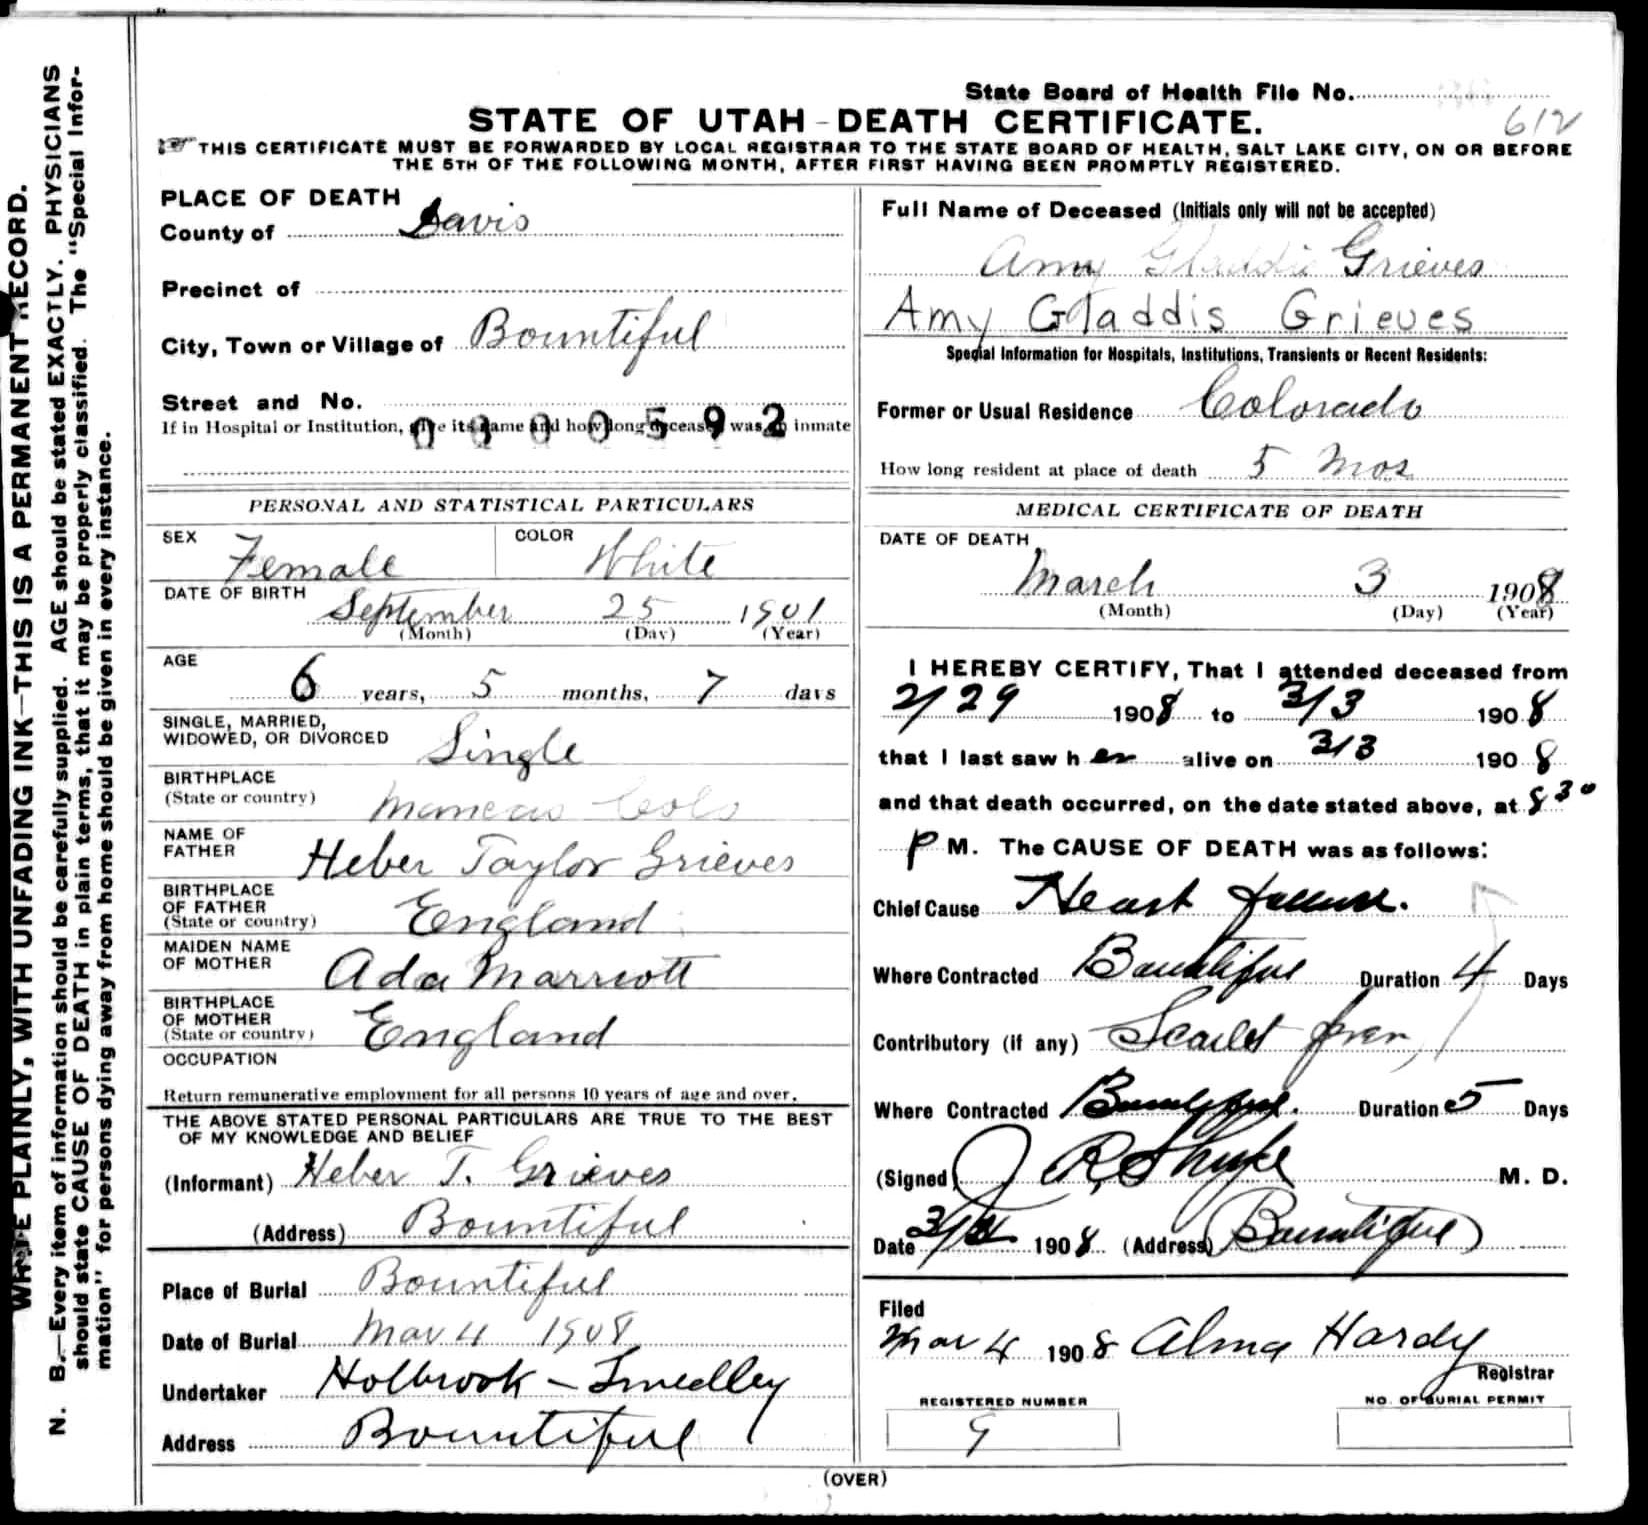 State Board of Health File No.
612
STATE OF UTAH - DEATH CERTIFICATE.
☞ THIS CERTIFICATE MUST BE FORWARDED BY LOCAL REGISTRAR TO THE STATE BOARD OF HEALTH, SALT LAKE CITY, ON OR BEFORE
THE 5TH OF THE FOLLOWING MONTH, AFTER FIRST HAVING BEEN PROMPTLY REGISTERED.
WRITE PLAINLY, WITH UNFADING INK—THIS IS A PERMANENT RECORD.
N. B.—Every item of information should be carefully supplied. AGE should be stated EXACTLY. PHYSICIANS
should state CAUSE OF DEATH in plain terms, that it may be properly classified. The "Special Infor-
mation" for persons dying away from home should be given in every instance.
PLACE OF DEATH
County of Davis
Precinct of
City, Town or Village of Bountiful
Street and No.
If in Hospital or Institution, give its name and how long deceased was an inmate
0000592
PERSONAL AND STATISTICAL PARTICULARS
SEX Female COLOR White
DATE OF BIRTH
September 25 1901
(Month) (Day) (Year)
AGE
6 years, 5 months, 7 days
SINGLE, MARRIED,
WIDOWED, OR DIVORCED Single
BIRTHPLACE
(State or country) Mancos Colo
NAME OF
FATHER Heber Taylor Grieves
BIRTHPLACE
OF FATHER
(State or country) England
MAIDEN NAME
OF MOTHER Ada Marriott
BIRTHPLACE
OF MOTHER
(State or country) England
OCCUPATION
Return remunerative employment for all persons 10 years of age and over.
THE ABOVE STATED PERSONAL PARTICULARS ARE TRUE TO THE BEST
OF MY KNOWLEDGE AND BELIEF
(Informant) Heber T. Grieves
(Address) Bountiful
Place of Burial Bountiful
Date of Burial Mar 4 1908
Undertaker Holbrook - Smedley
Address Bountiful
Full Name of Deceased (Initials only will not be accepted)
Amy Gladdis Grieves
Amy Gladdis Grieves
Special Information for Hospitals, Institutions, Transients or Recent Residents:
Former or Usual Residence Colorado
How long resident at place of death 5 Mos
MEDICAL CERTIFICATE OF DEATH
DATE OF DEATH
March 3 1908
(Month) (Day) (Year)
I HEREBY CERTIFY, That I attended deceased from
2/29 1908 to 3/3 1908
that I last saw her alive on 3/3 1908
and that death occurred, on the date stated above, at 8 30
P M. The CAUSE OF DEATH was as follows:
Chief Cause Heart failure.
Where Contracted Bountiful Duration 4 Days
Contributory (if any) Scarlet fever
Where Contracted Bountiful. Duration 5 Days
(Signed) J R M. D.
Date 1908 (Address) Bountiful
Filed
Mar 4 1908 Alma Hardy
Registrar
REGISTERED NUMBER
9
NO. OF BURIAL PERMIT
(OVER)